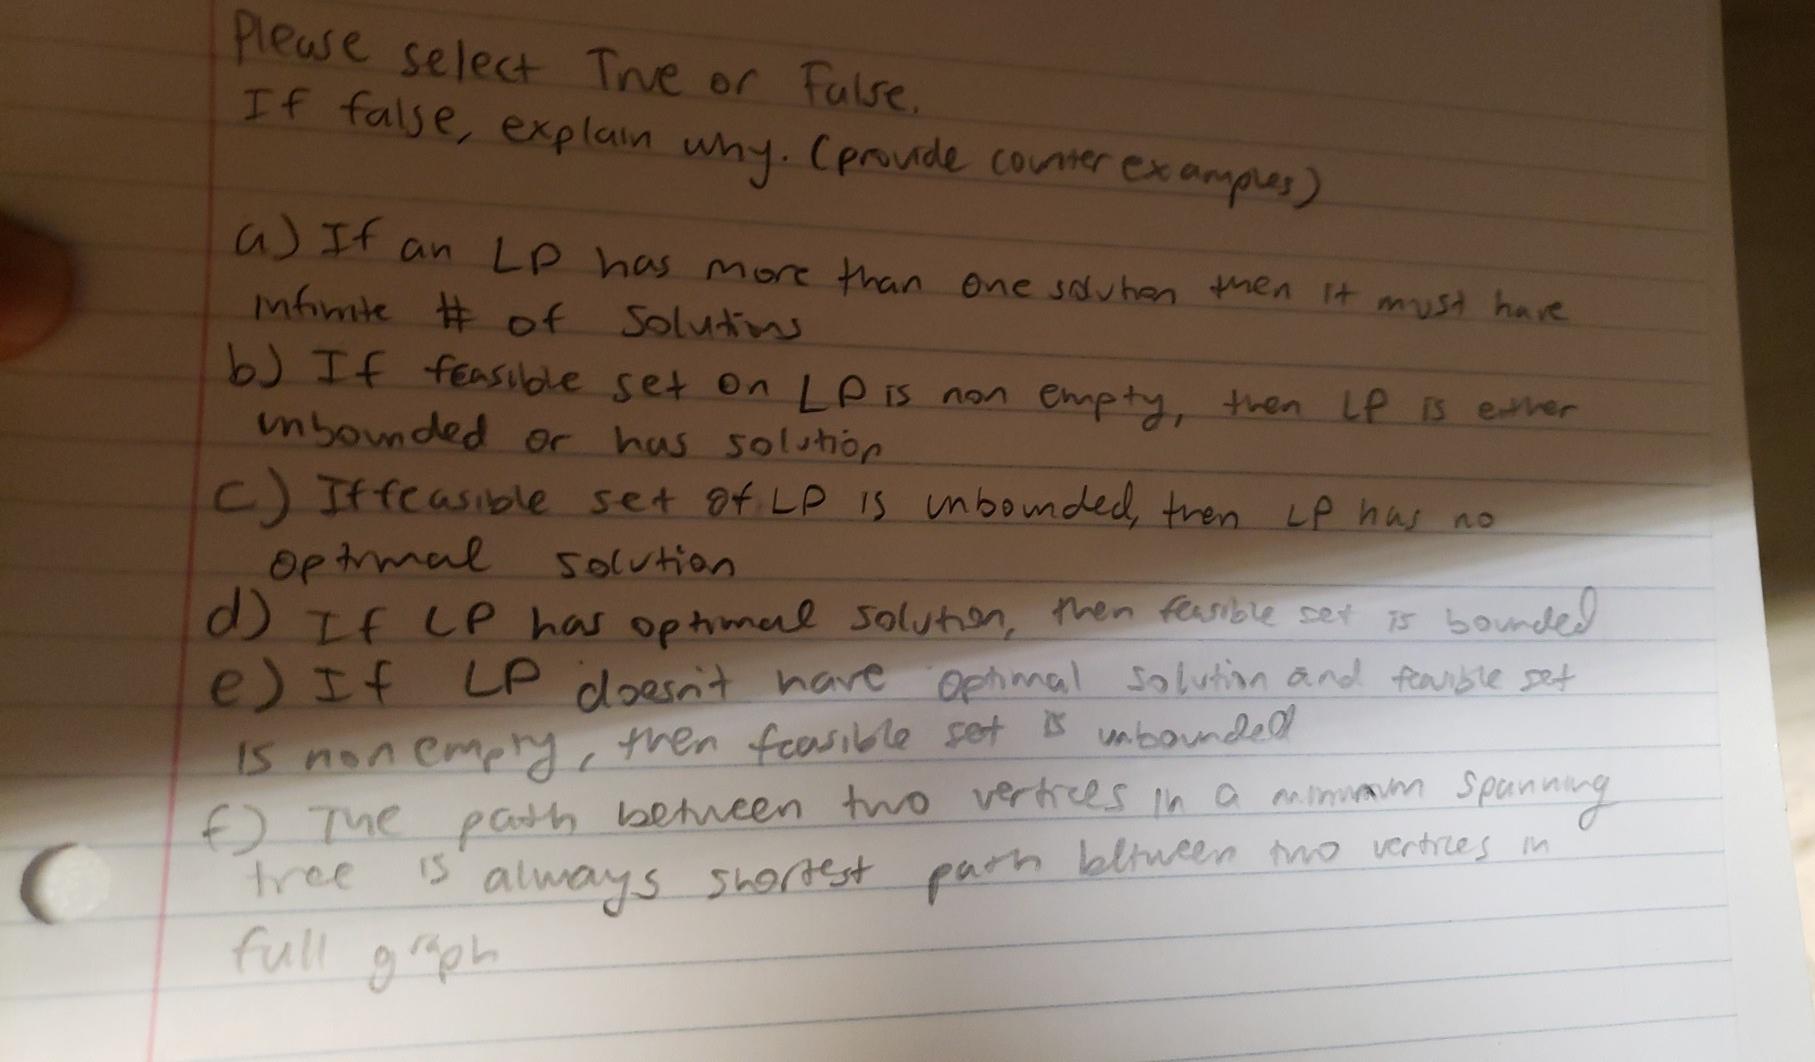 Please select True or False.
If false, explain why. (provide counter examples)
a) If an LP has more than one solution then it must have
infinite # of solutions
b) If feasible set on LP is non empty, then LP is either
unbounded or has solution
c) If feasible set of LP is unbounded, then LP has no
optimal solution
d) If LP has optimal solution, then feasible set is bounded
e) If LP doesn't have optimal solution and feasible set
is non empty, then feasible set is unbounded
f) The path between two vertices in a minimum spanning
tree is always shortest path between two vertices in
full graph